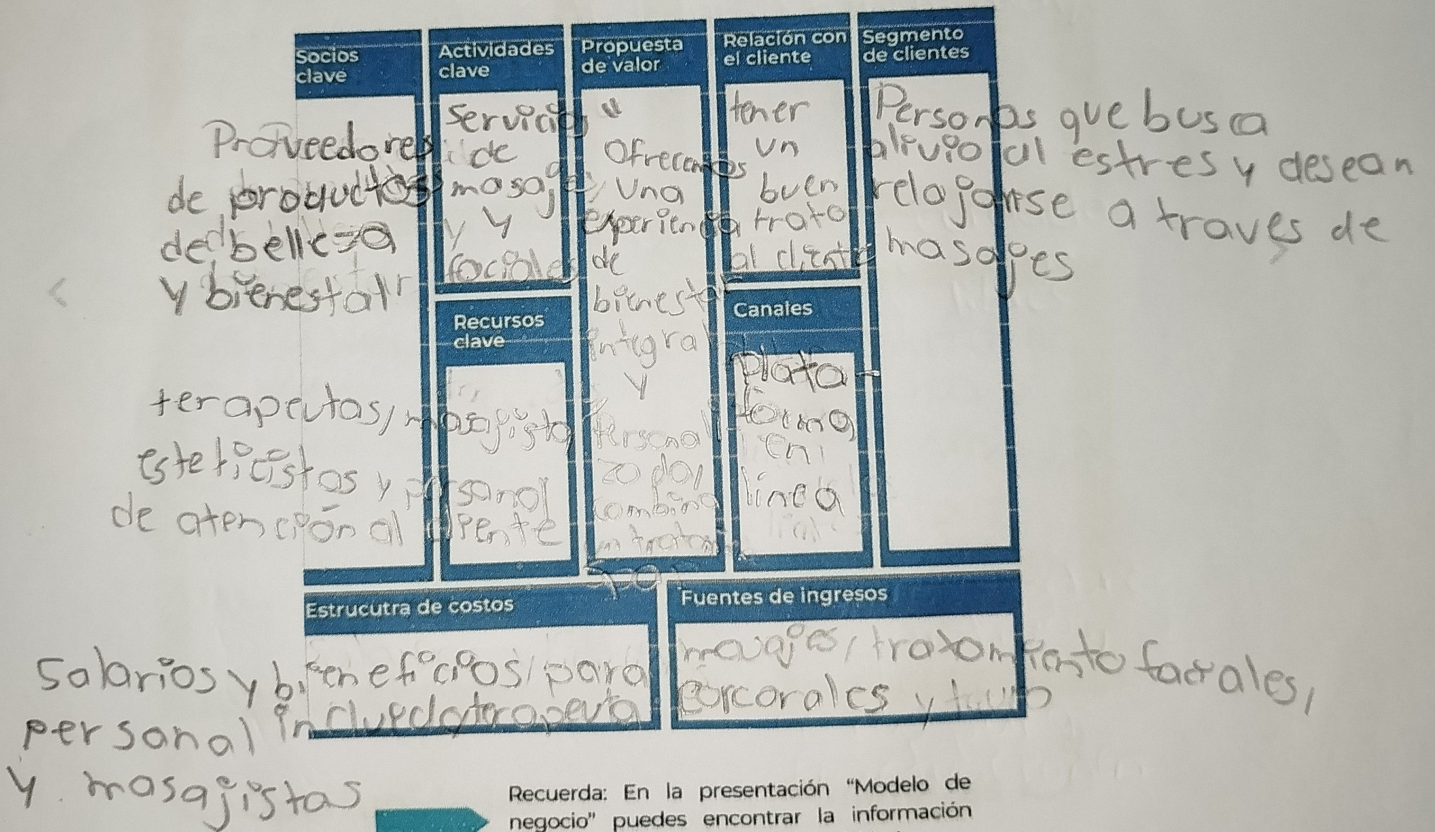 Socios
clave
Proveedores
de productos
de belleza
y bienestar
Actividades
clave
servicios
de
masaje
y
faciales
Recursos
clave
terapeutas, masajista
esteticistas y personal
de atención al cliente
Propuesta
de valor
ofrecemos
una
experiencia
de
bienestar
integral
y
personali
zada
combina
spa
Relación con
el cliente
tener
un
buen
trato
al cliente
Canales
plata-
forma
en
línea
Segmento
de clientes
Personas que busca
alivio al estres y desean
relajarse a traves de
masajes
Estrucutra de costos
Salarios y beneficios para
personal
y masajistas
Fuentes de ingresos
tratamiento faciales,
corcorales y
Recuerda: En la presentación “Modelo de
negocio” puedes encontrar la información